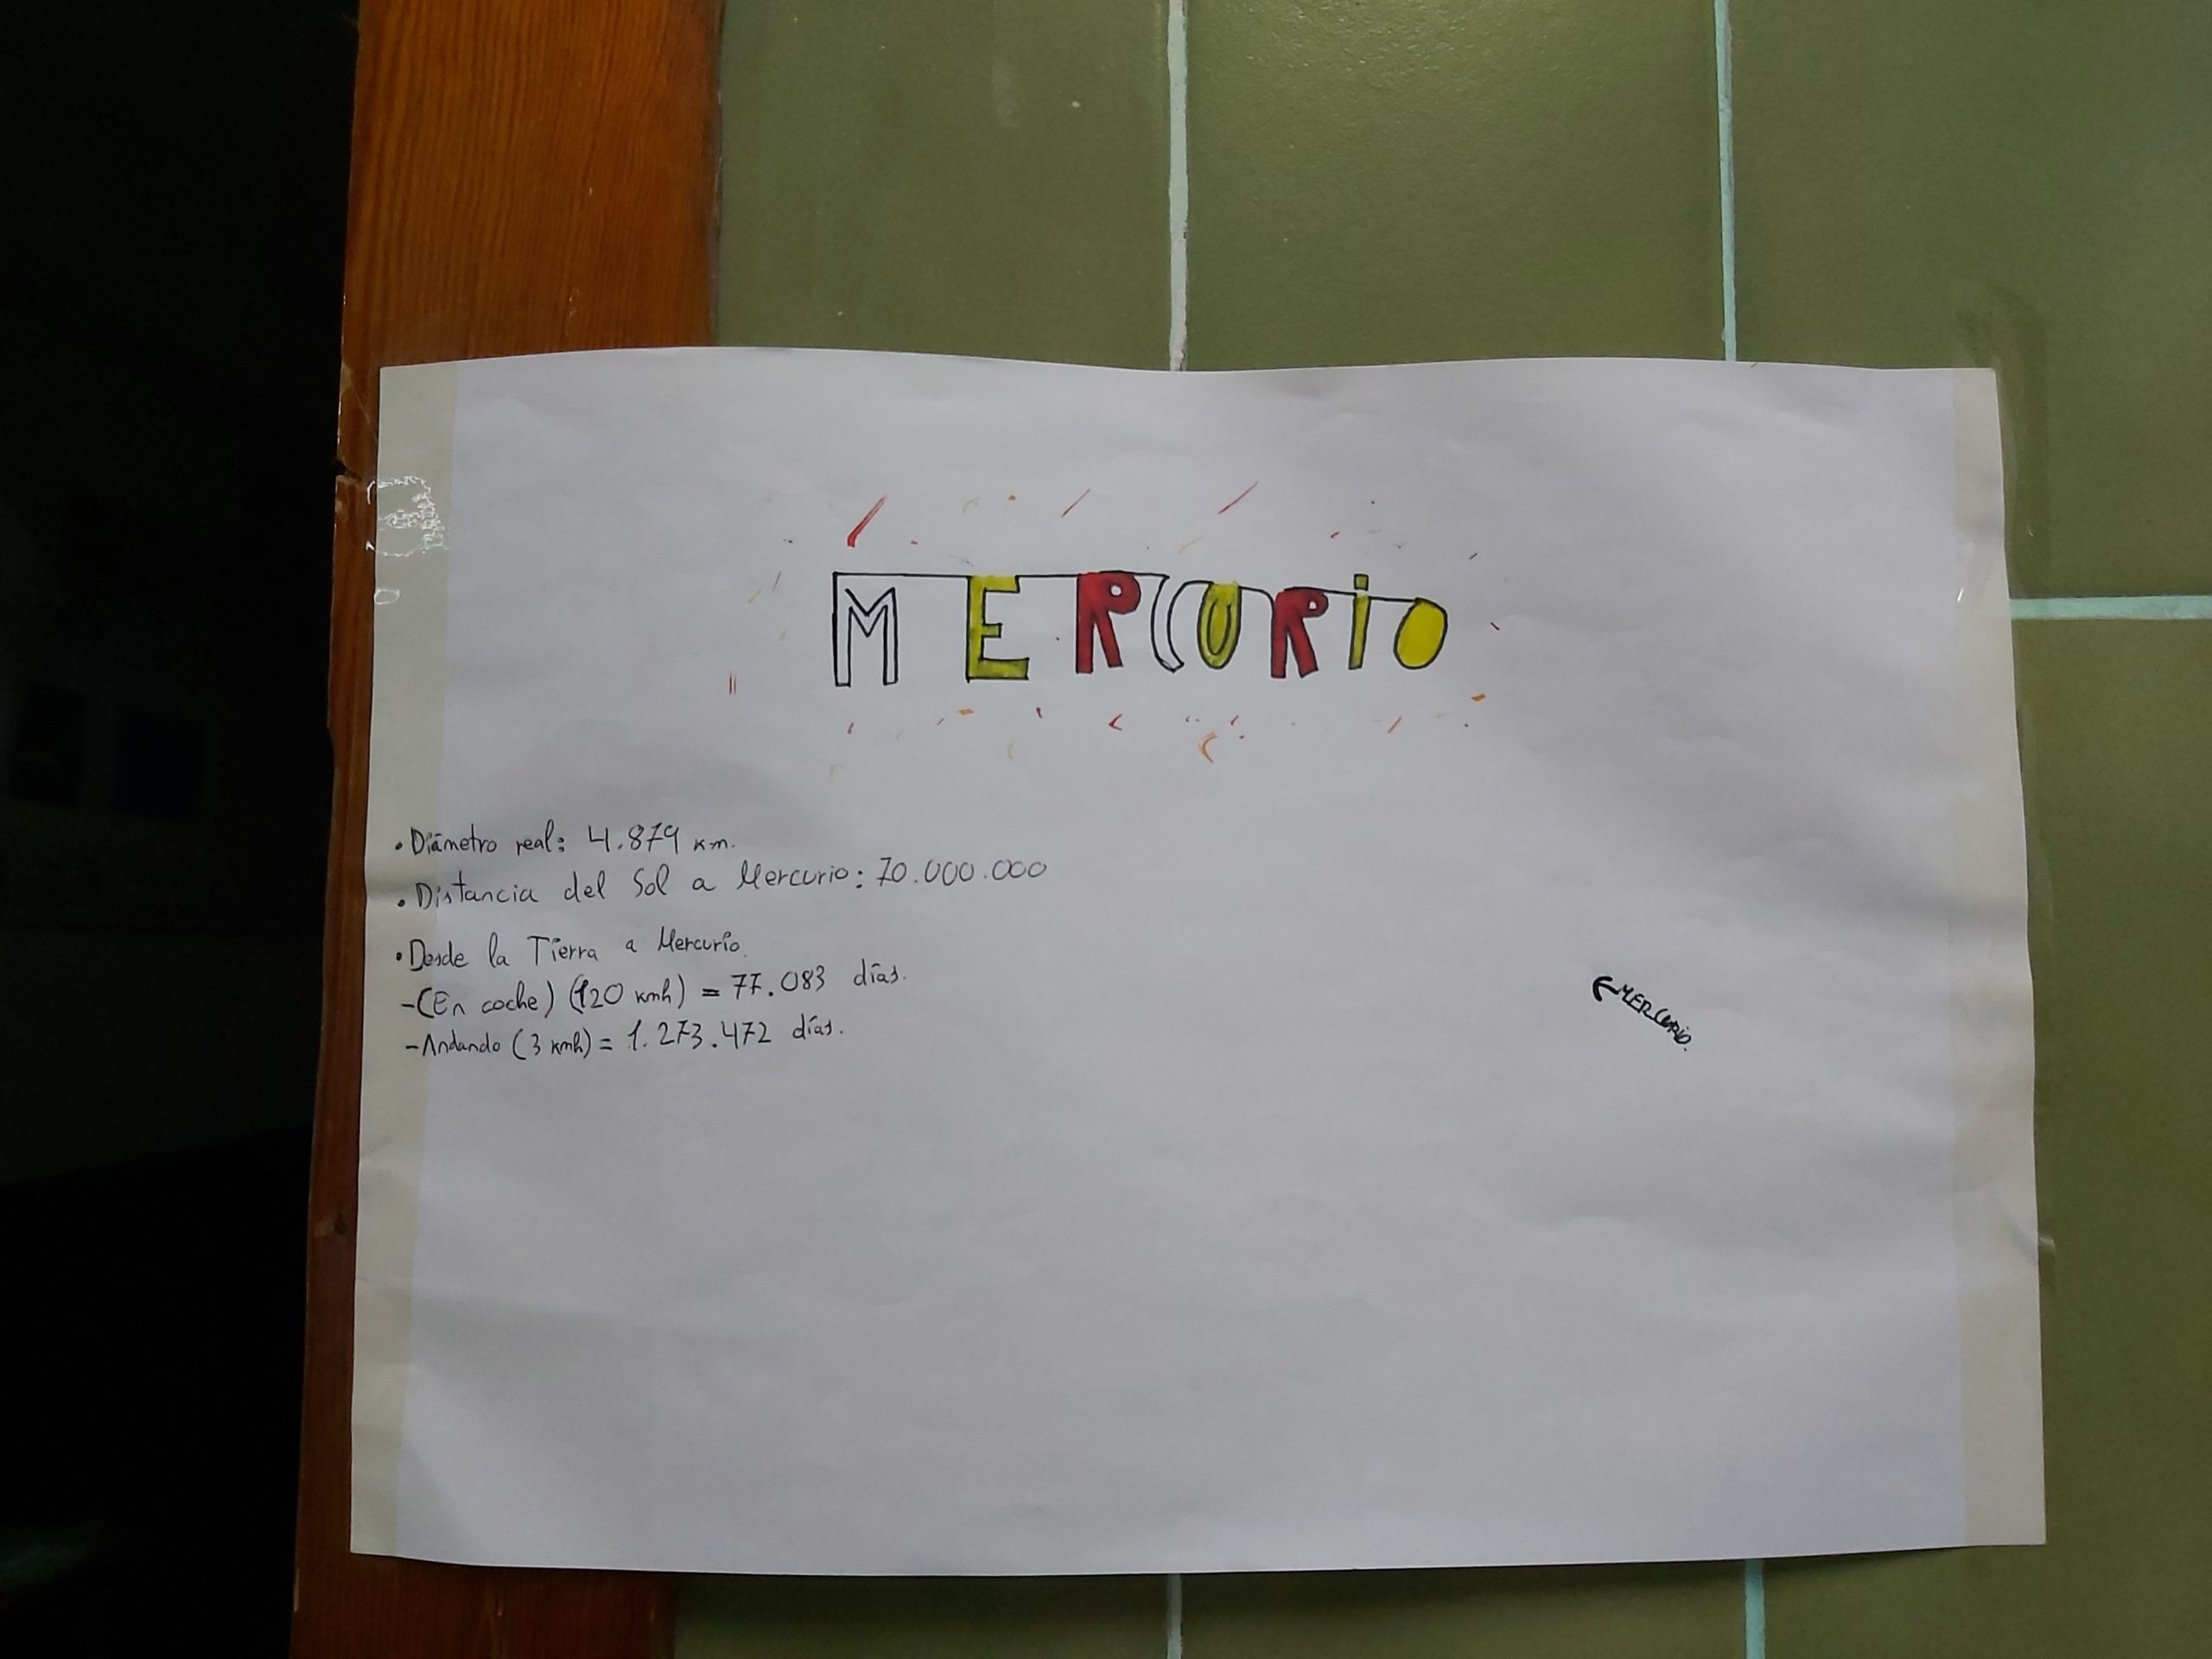 MERCURiO
• Diámetro real: 4.879 km.
• Distancia del Sol a Mercurio: 70.000.000
• Desde la Tierra a Mercurio.
-(En coche) (120 kmh) = 77.083 días.
-Andando (3 kmh) = 1.273.472 días.
MERCURIO.